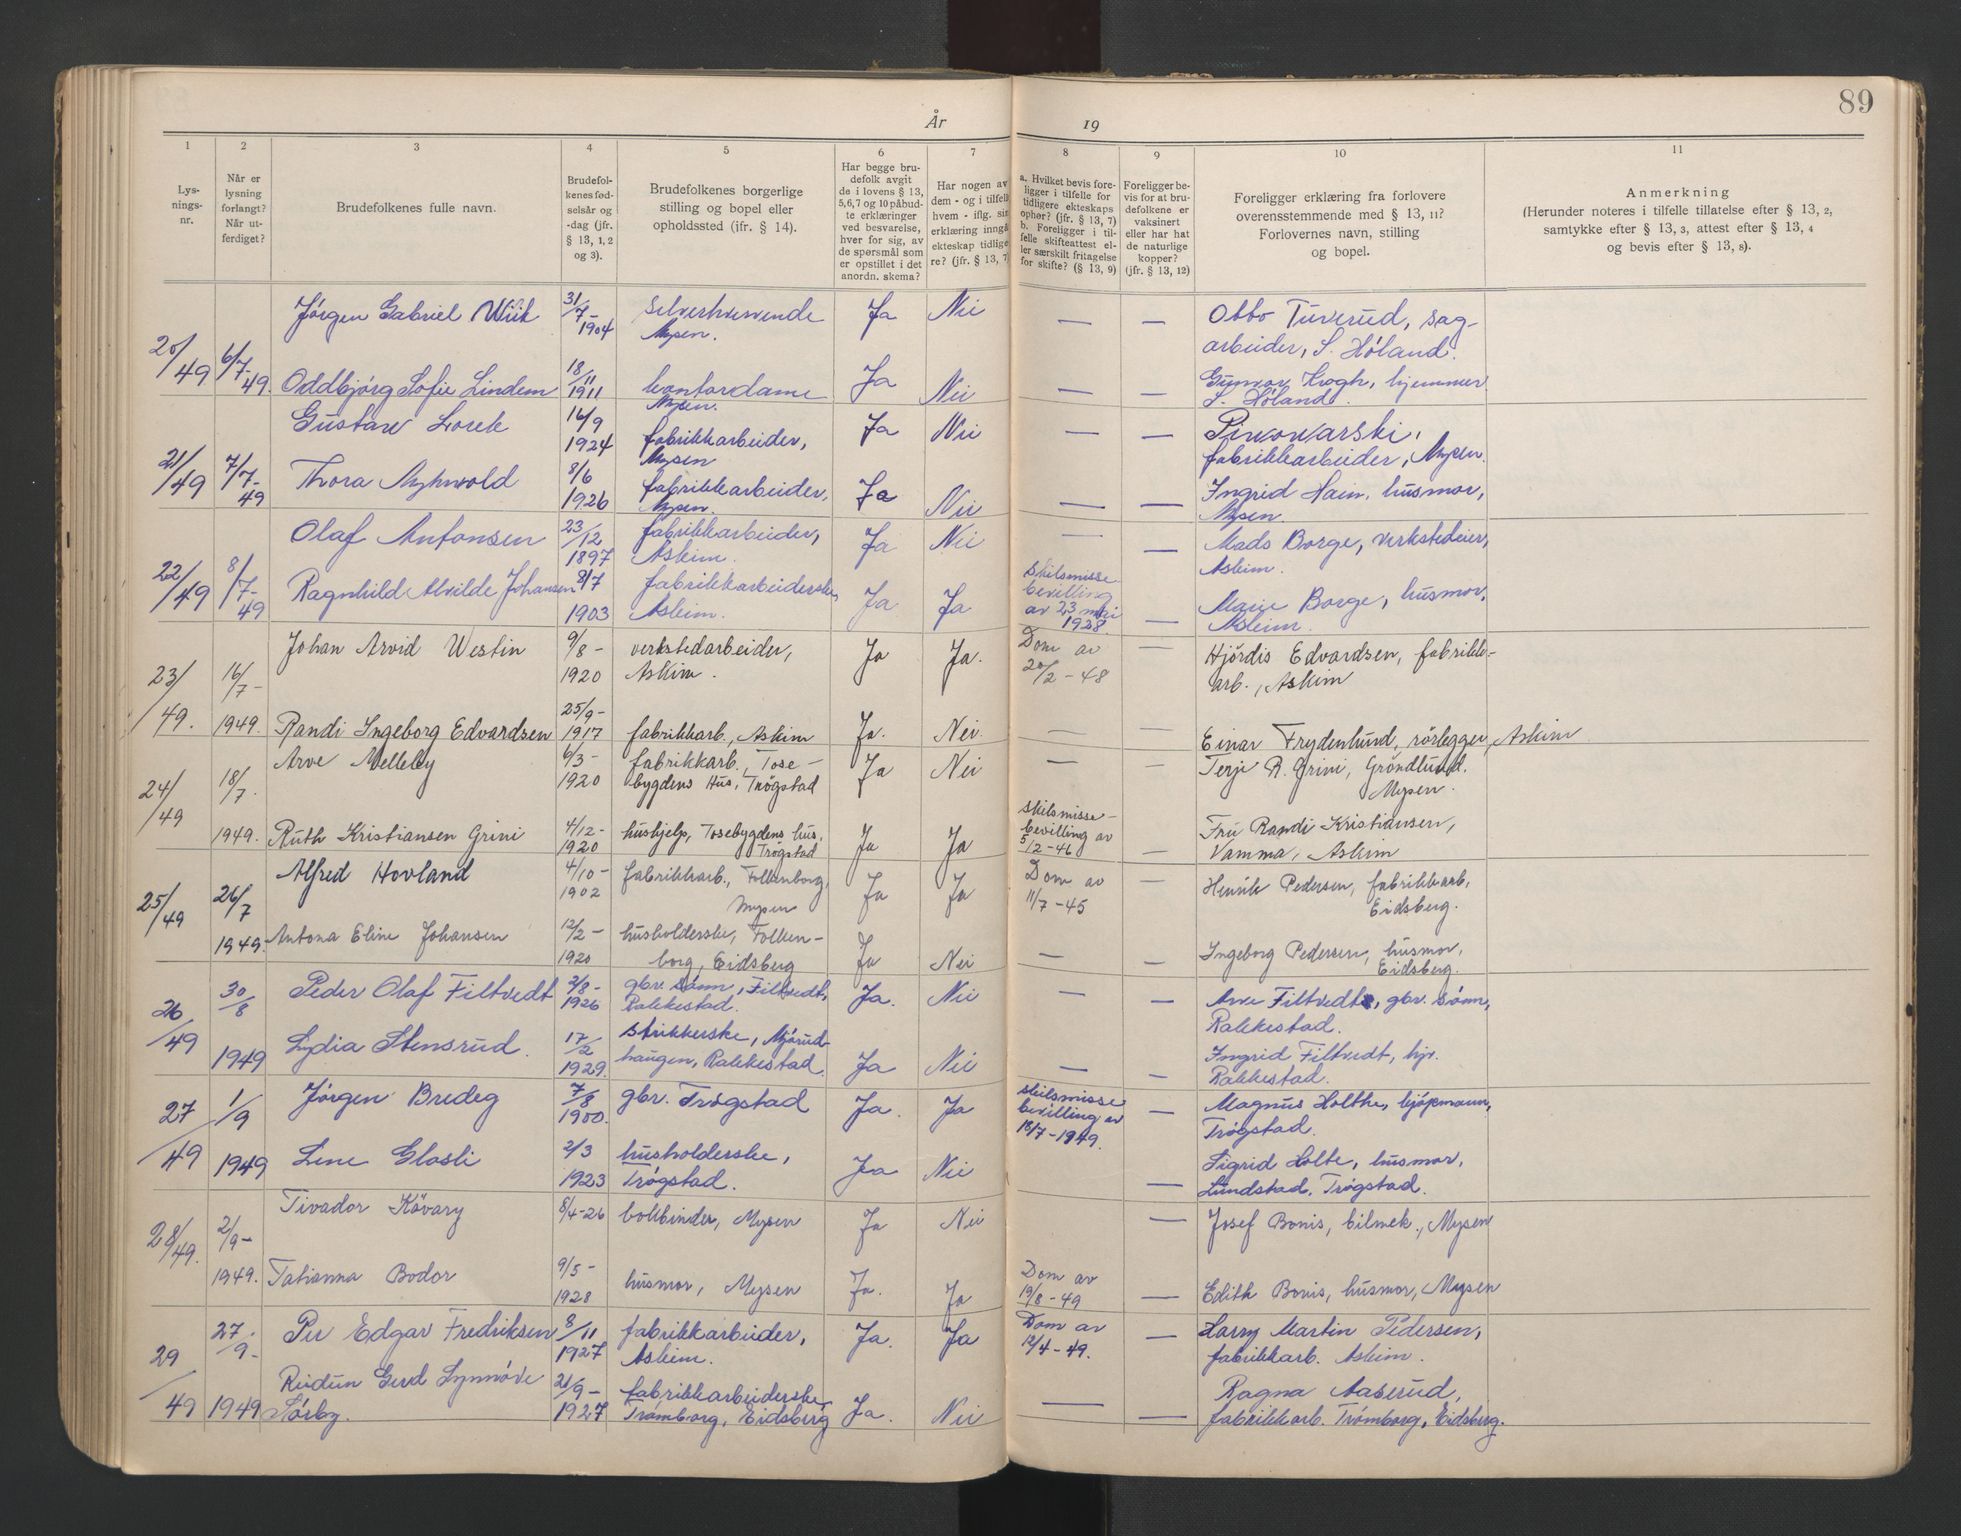 89
År 19
1 2 3 4 5 6 7 8 9 10 11
Lys-
nings-
nr.
Når er
lysning
forlangt?
Når ut-
ferdiget?
Brudefolkenes fulle navn.
Brudefol-
kenes fød-
selsår og
-dag (jfr.
§ 13, 1, 2
og 3).
Brudefolkenes borgerlige
stilling og bopel eller
opholdssted (jfr. § 14).
Har begge bru-
defolk avgit
de i lovens § 13,
5,6,7 og 10 påbud-
te erklæringer
ved besvarelse,
hver for sig, av
de spørsmål som
er opstillet i det
anordn. skema?
Har nogen av
dem - og i tilfelle
hvem - iflg. sin
erklæring inngå
ekteskap tidlige
re? (jfr. § 13, 7)
a. Hvilket bevis fore-
ligger i tilfelle for
tidligere ekteskaps
ophør? (jfr. § 13, 7)
b. Foreligger i til-
felle skifteattest el-
ler særskilt fritagelse
for skifte? (§ 13, 9)
Foreligger be-
vis for at bru-
defolkene er
vaksinert
eller har hat
de naturlige
kopper?
(jfr. § 13, 12)
Foreligger erklæring fra forlovere
overensstemmende med § 13, 11?
Forlovernes navn, stilling
og bopel.
Anmerkning
(Herunder noteres i tilfelle tillatelse efter § 13, 2,
samtykke efter § 13, 3, attest efter § 13, 4
og bevis efter § 13, 8).
20/49 6/7-49.
Jörgen Gabriel Wiik 31/7-1904 selverhvervende Mysen. Ja Nei — — Otto Tuverud, sag-
arbeider, S. Höland.
Oddbjörg Sofie Lindem 18/11 1911 kontordame Mysen. Ja Nei — — Gunvor Krogh, hjemmev.
S. Höland.
21/49 7/7-49
Gustav Lorek 16/9 1924 fabrikkarbeider, Mysen Ja Nei — — Pivovarski,
fabrikkarbeider, Mysen.
Thora 8/6 1926 fabrikkarbeider, Mysen. Ja Nei — — Ingrid Hain, husmor,
Mysen.
22/49 8/7-49
Olaf Antonsen 23/12 1897 fabrikkarbeider, Askim. Ja Nei — — Mads Borge, verkstedeier,
Askim.
Ragnhild Alvilde Johansen 8/7 1903 fabrikkarbeiderske, Askim. Ja Ja skilsmisse
bevilling
av 23 mai
1928. — Marie Borge, husmor,
Askim.
23/49. 16/7-1949.
Johan Arvid Westin 9/8-1920 verkstedarbeider, Askim. Ja Ja. Dom av
20/2-48 — Hjördis Edvardsen, fabrikk-
arb., Askim
Randi Ingeborg Edvardsen 25/9-1917 fabrikkarb., Askim Ja. Nei. — — Einar Frydenlund, rörlegger, Askim
24/49 18/7.1949.
Arve Melleby 6/3-1920 fabrikkarb., Tose-
bygdens Hus, Trögstad Ja Nei — — Terje R. Grini, Gröndlund.
Mysen.
Ruth Kristiansen Grini 4/12-1920 hushjelp, Tosebygdens hus,
Trögstad Ja Ja skilsmisse-
bevilling av
5/12-46 — Fru Randi Kristiansen,
Vamma, Askim
25/49 26/7 1949.
Alfred Hovland 4/10-1902 fabrikkarb., Folkenborg,
Mysen Ja Ja Dom av
11/7-45 — Henrik Pedersen, fabrikkarb,
Eidsberg.
Antona Eline Johansen 12/2-1920 husholderske, Folken-
borg, Eidsberg Ja Nei — — Ingeborg Pedersen, husmor,
Eidsberg.
26/49 30/8 1949
Peder Olaf Filtvedt 2/8-1926 gbr. sönn, Filtvedt,
Rakkestad. Ja. Nei — — Arve Filtvedt, gbr. sönn,
Rakkestad.
Lydia Stensrud. 17/2 1929. strikkerske, Mjörud-
haugen, Rakkestad. Ja Nei — — Ingrid Filtvedt, hjv.
Rakkestad.
27/49 1/9 1949
Jörgen Bredeg 7/8 1900. gbr. Trögstad Ja. Ja skilsmisse
bevilling av
18/7-1949. — Magnus Holthe, kjöpmann,
Trögstad.
Lene Glosli 2/3 1923 husholderske,
Trögstad. Ja Nei — Sigrid Holte, husmor,
Lundstad, Trögstad.
28/49. 2/9-1949.
Tivador Köváry 8/4-26 bokbinder, Mysen Ja Nei — Josef Bonis, bilmek., Mysen
Tatianna Bodor 9/5-1928 husmor, Mysen Ja. Ja Dom av
19/8-49 — Edith Bonis, husmor, Mysen
29/49 27/9-1949
Per Edgar Fredriksen 8/11 1927 fabrikkarbeider,
Askim. Ja. Ja Dom av
12/4-49. — Harry Martin Pedersen,
fabrikkarb. Askim.
Reidun Gerd Synnöve
Sörby. 21/9-1927 fabrikkarbeiderske
Trömborg, Eidsberg Ja. Nei — — Ragna Aaserud,
fabrikkarb. Trömborg, Eidsberg.